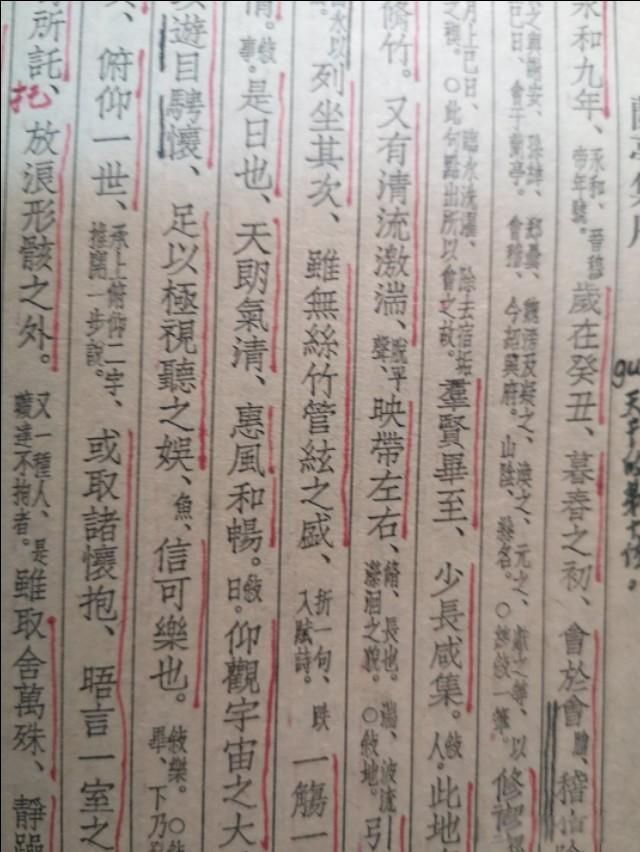 永和九年、永和、晉穆帝年號。歲在癸丑、暮春之初、會於會稽山陰
王羲之與謝安、孫綽、郗曇、魏滂及凝之、渙之、元之、獻之等、以
巳日、會于蘭亭。會稽、今紹興府。山陰、縣名。○總敘一筆。修禊
月上巳日、臨水洗濯、除去宿垢之稧。○此句點出所以會之故。羣賢畢至、少長咸集。敘人。此地
脩竹。又有清流激湍、聲、映帶左右、脩、長也。湍、波流瀠洄之貌。○敘地。引
水以列坐其次、雖無絲竹管絃之盛、折一句、跌入賦詩。一觴一
敘事。是日也、天朗氣清、惠風和暢。敘日。仰觀宇宙之大
遊目騁懷、足以極視聽之娛、魚、信可樂也。敘樂。○敘事畢、下乃
俯仰一世、承上俯仰二字、推開一步說。或取諸懷抱、晤言一室之
所託、托放浪形骸之外。又一種人、是曠達不拘者。雖取舍萬殊、靜躁